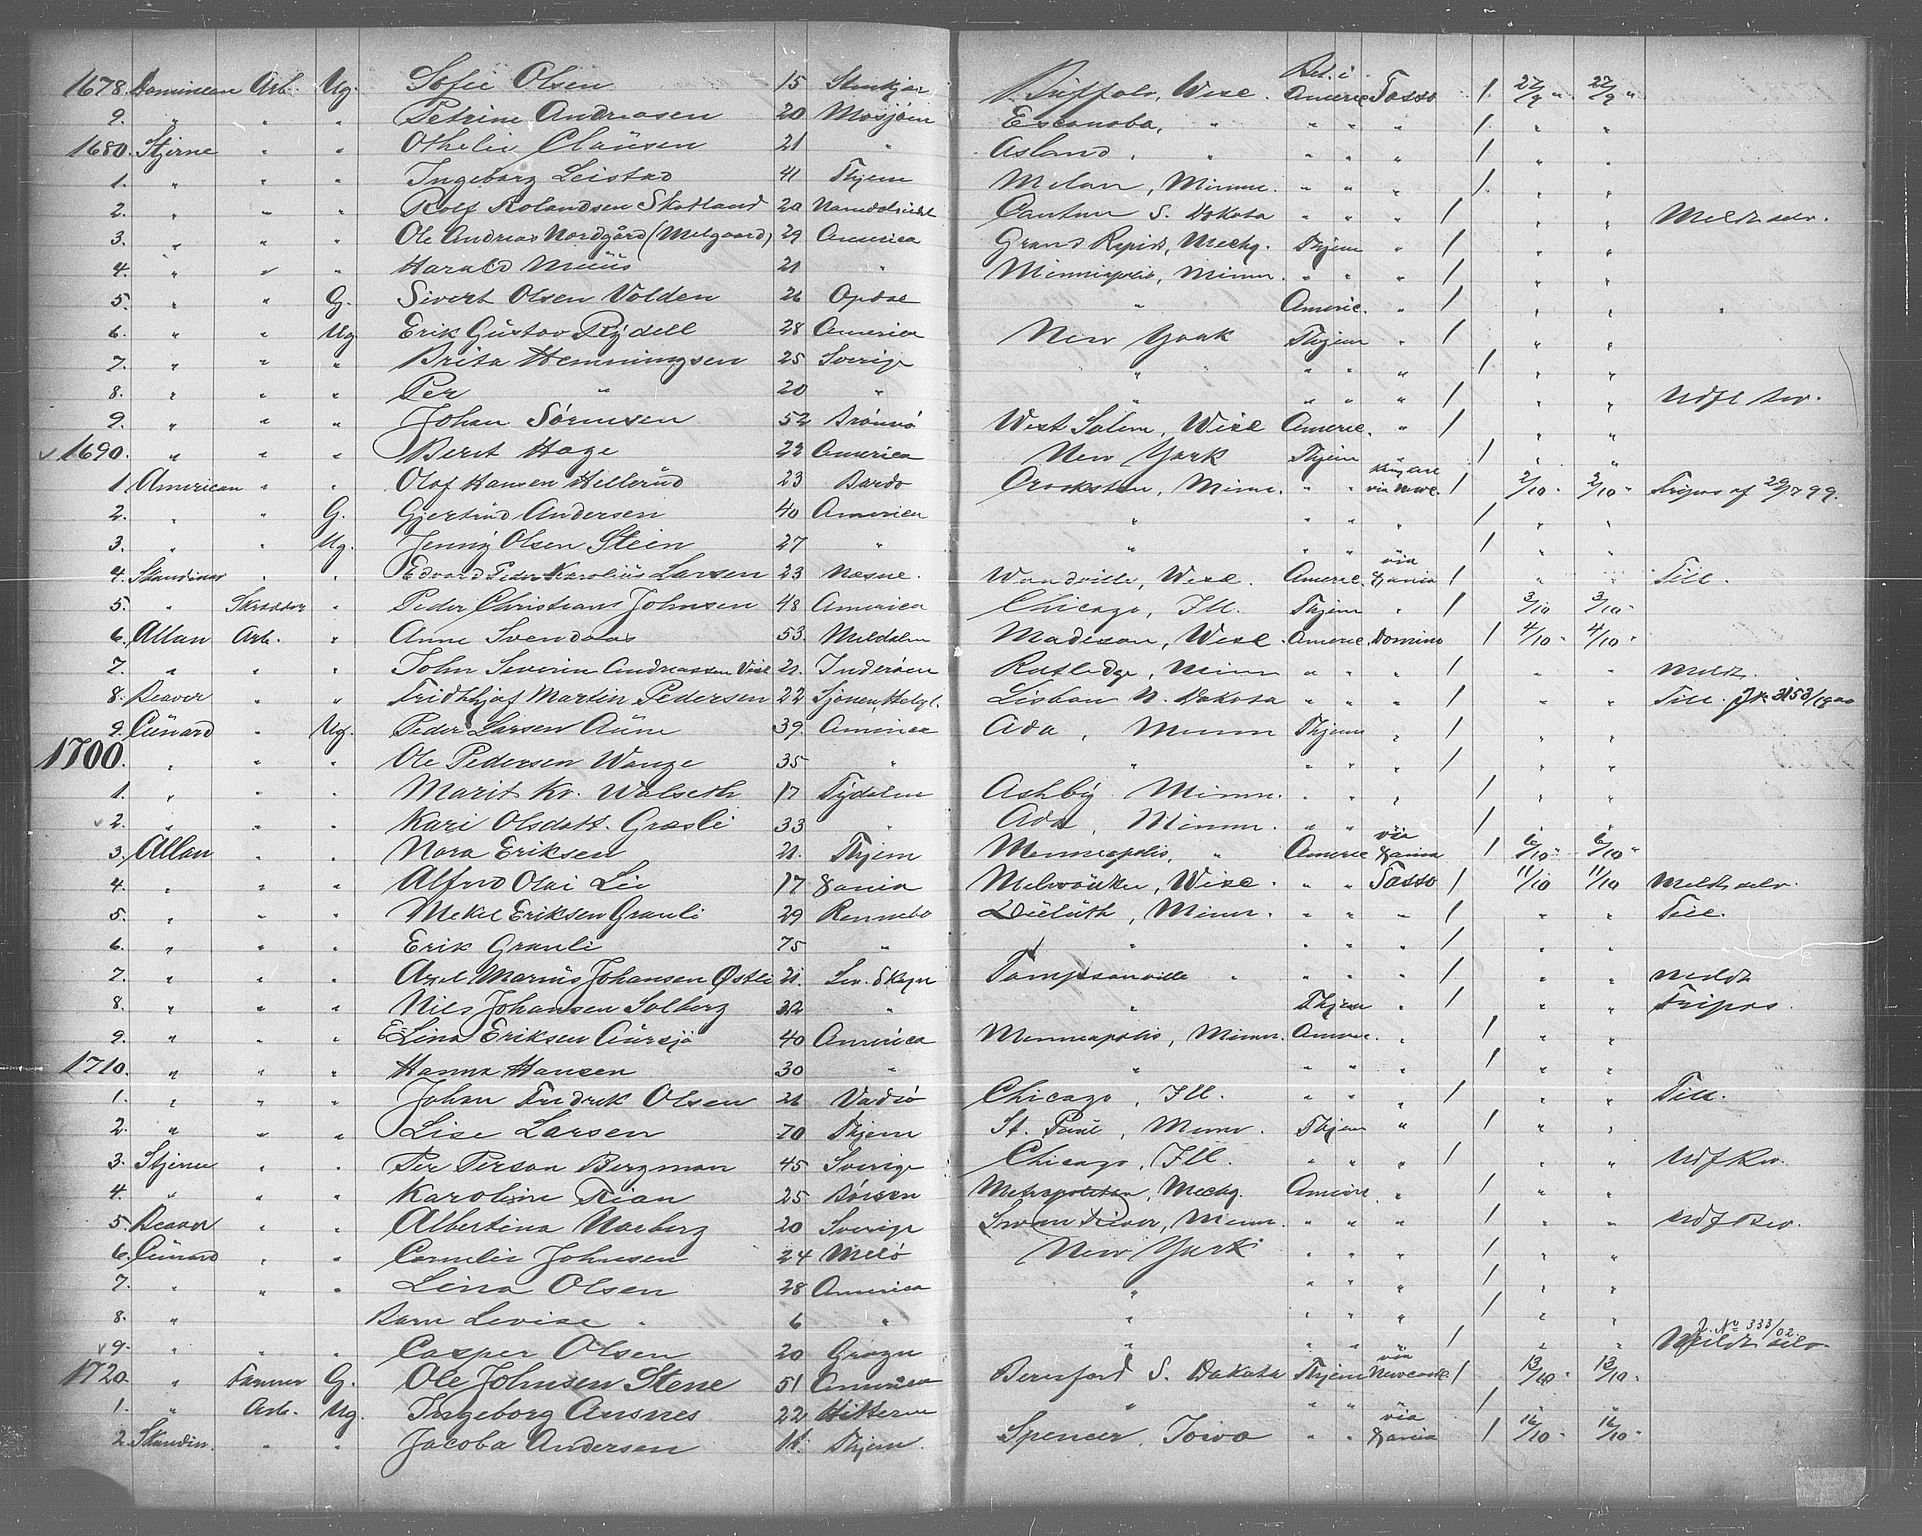 1678. Dominean Arb. Ug. Sofie Olsen 15 Stenkjær Buffalo, Wisc. Bet. i Americ. Tasso 1 27/9 " 27/9 "
9. " " " Petrine Andreasen 20 Mosjøen Escanaba, " " " " 1 " "
1680. Stjerne " " Othelie Clausen 21 " Asland, " " " " 1 " "
1. " " " Ingeborg Leistad 41 Thjem Milan, Minne. " " " 1 " "
2. " " " Rolf Rolandsen Skatland 20 Namdalseidet Canton S. Dakota " " " 1 " " Meldt selv.
3. " " " Ole Andreas Nordgård (Melgaard) 29 America Grans Rapids, Mechg. Thjem " 1 " "
4. " " " Harald Muus 21 " Minneapolis, Minne. " " " 1 " "
5. " " G. Sivert Olsen Volden 26 Opdal " Americ. " 1 " "
6. " " Ug. Erik Gustav Rydell 28 America New York Thjem " 1 " "
7. " " " Brita Hemmingsen 25 Sverige " " " " " 1 " "
8. " " " Per " 20 " " " " " 1 " "
9. " " " Johan Sørensen 52 Brønnø West Salem, Wisc Americ. " 1 " "
1690. " " " Berit Hage 22 America New York Thjem " 1 " "
1 American " " Olaf Hansen Hellerud 23 Bardo Crookston, Minne. " " via Newc. 1 2/10 " 2/10 " Fripas af 29/7 99.
2. " " G. Gjertrud Andersen 40 America " " " " 1 " "
3. " " Ug. Jenny Olsen Stein 27 " " " " 1 " "
4. Skandinav " " Edvard Peder Karolius Larsen 23 Næsne. Woodville, Wisc. Americ. via Xania 1 " " Till.
5. " Skrædder " Peder Christians Johnsen 48 America Chicago, Ill. Thjem " 1 3/10 3/10 "
6. Allan Arb. " Anne Svendsdas 53. Meldalen Madison, Wisc. Americ. Domino 1 4/10 " 4/10 "
7. " " " John Severin Andreassen 21. Inderøen Rutledge, Minn " " " 1 " " Meldt.
8. Beaver " " Fridthjof Martin Pedersen 22 Sjonen, Helgl. Lisbon N. Dakota " " " 1 " " Till. J№ 3153/1900
9. Cunard " Ug. Peder Larsen Aune 39. America Ada, Minne Thjem " 1 " "
1700. " " " Ole Pedersen Wange 35 " " " " " 1 " "
1. " " " Marit Kr. Walseth 17 Tydalen Ashby Minne. " " " 1 " "
2. " " " Kari Olsdatt. Græsli 33 " Ada, Minne. " " 1 " "
3. Allan " " Nora Eriksen 21. Thjem Menneapolis, " Americ via Xania 1 6/10 " 6/10 "
4. " " " Alfred Olai Lie 17 Xania Melwaukee, Wisc. " " Tasso 1 11/10 11/10 Meldt selv.
5. " " " Mekel Eriksen Granli 29 Rennebo Duluth, Minne. " " " 1 " " Till.
6. " " " Erik Granli 75 " " " " " 1 " "
7. " " " Axel Marius Johansen Østli 21. Lev. Skogn Tompsonville " " " " 1 " " Meldt
8. " " " Nils Johansen Solberg 32 " " Thjem " 1 " " Fripas
9. " " " Elina Eriksen Aursjø 40 America Menneapolis, Minne. Americ. " 1 " "
1710. " " " Hanna Hansen 30 " " " " " 1 " "
1. " " " Johan Fredrik Olsen 21 Vadsø Chicago, Ill. " " " 1 " " Till.
2. " " " Lise Larsen 70 Thjem St. Paul, Minne. Thjem " 1 " "
3. Stjerne " " Per Person Bergman 45 Sverige Chicago, Ill. " " " 1 " "
4. " " " Karoline Rian 25 Børsen Metropolitan, Mechg. Americ. " 1 " "
5 Beaver " " Albertina Norberg 20 Sverige Swan River, Minne. " " " 1 " "
6. Cunard " " Cornelie Johnsen 24 Melø New York " " " 1 " "
7. " " " Lina Olsen 28 America " " " " 1 " "
8. " Barn Levise " 6 " " " " " 1 " "
9. " " " Casper Olsen 20 Grogn " " " " 1 " " J. № 333/02 Meldt selv.
1720. " Farmer G. Ole Johnsen Stene 51 America Beresford S. Dakota Thjem via Newcastl. 1 13/10 " 13/10 "
1. " Arb. Ug. Ingeborg Ansnes 22 Hitteren " " " 1 " "
2 Skandin. " " Jacoba Andersen 16. Thjem. Spencer, Iowa " " via Xania 1 16/10 " 16/10 "